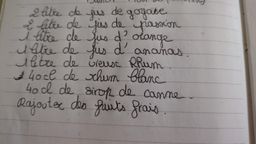 2 litre de jus de goyave
2 litre de jus de passion
1 litre de jus d'orange
1 litre de jus d'ananas.
1 litre de vieux Rhum
40cl de rhum blanc
40 cl de sirop de canne.
Rajouter des fruits frais.